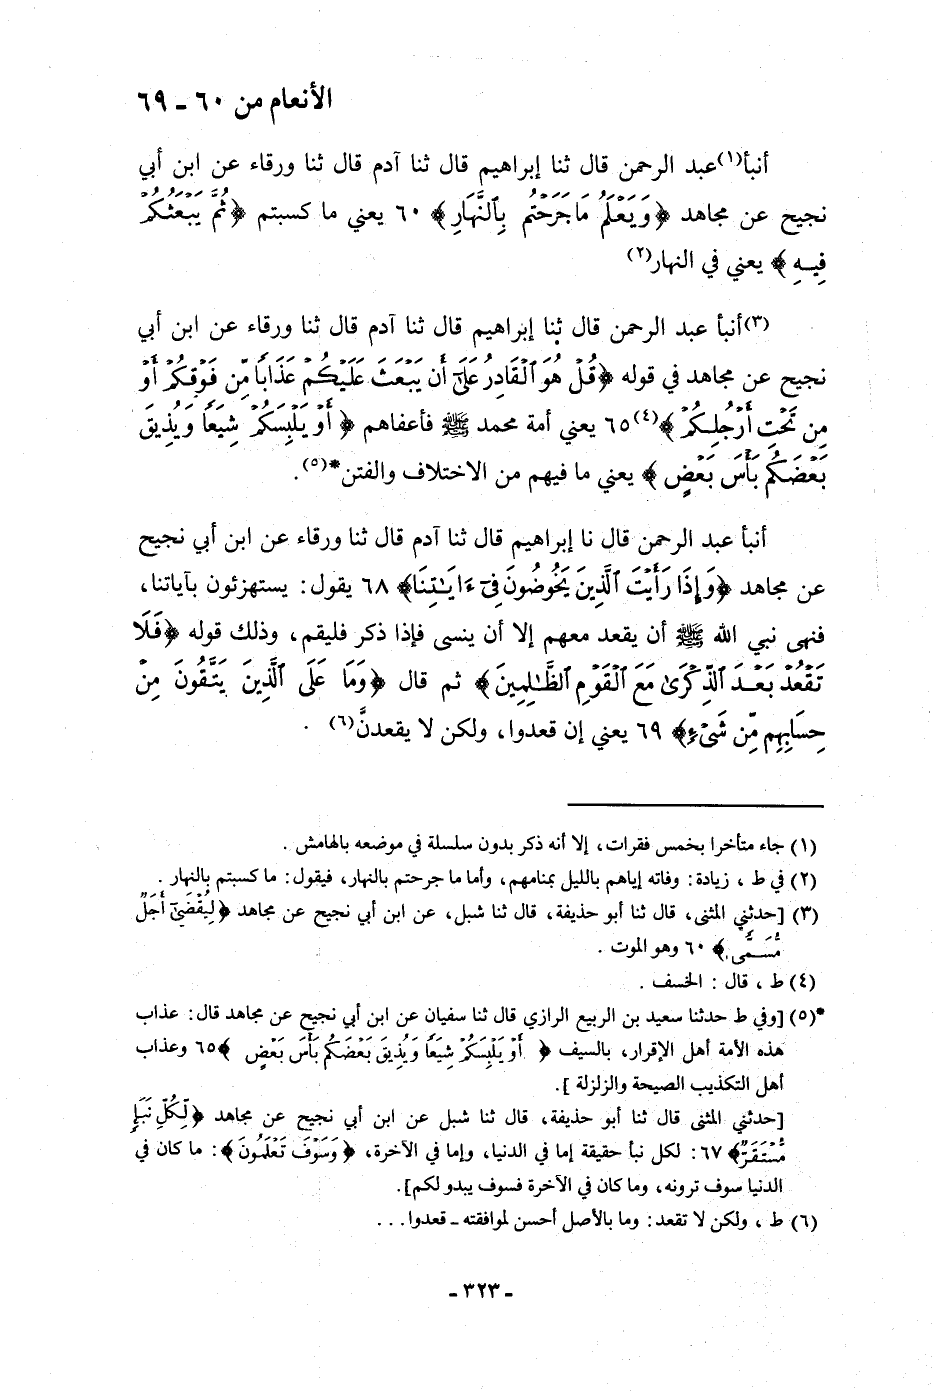 الأنعام من ٦٠ ـ ٦٩
أنبأ(١) عبد الرحمن قال ثنا إبراهيم قال ثنا آدم قال ثنا ورقاء عن ابن أبي
نجيح عن مجاهد ﴿وَيَعْلَمُ مَا جَرَحْتُم بِٱلنَّهَارِ﴾ ٦٠ يعني ما كسبتم ﴿ثُمَّ يَبْعَثُكُمْ
فِيهِ﴾ يعني في النهار(٢)
(٣)أنبأ عبد الرحمن قال ثنا إبراهيم قال ثنا آدم قال ثنا ورقاء عن ابن أبي
نجيح عن مجاهد في قوله ﴿قُلْ هُوَ ٱلْقَادِرُ عَلَىٰٓ أَن يَبْعَثَ عَلَيْكُمْ عَذَابًا مِّن فَوْقِكُمْ أَوْ
مِن تَحْتِ أَرْجُلِكُمْ﴾(٤) ٦٥ يعني أمة محمد ﷺ فأعفاهم ﴿أَوْ يَلْبِسَكُمْ شِيَعًا وَيُذِيقَ
بَعْضَكُم بَأْسَ بَعْضٍ﴾ يعني ما فيهم من الاختلاف والفتن*(٥).
أنبأ عبد الرحمن قال نا إبراهيم قال ثنا آدم قال ثنا ورقاء عن ابن أبي نجيح
عن مجاهد ﴿وَإِذَا رَأَيْتَ ٱلَّذِينَ يَخُوضُونَ فِىٓ ءَايَـٰتِنَا﴾ ٦٨ يقول: يستهزئون بآياتنا،
فنهى نبي الله ﷺ أن يقعد معهم إلا أن ينسى فإذا ذكر فليقم، وذلك قوله ﴿فَلَا
تَقْعُدْ بَعْدَ ٱلذِّكْرَىٰ مَعَ ٱلْقَوْمِ ٱلظَّـٰلِمِينَ﴾ ثم قال ﴿وَمَا عَلَى ٱلَّذِينَ يَتَّقُونَ مِنْ
حِسَابِهِم مِّن شَىْءٍ﴾ ٦٩ يعني إن قعدوا، ولكن لا يقعدنَّ(٦) .
(١) جاء متأخرا بخمس فقرات، إلا أنه ذكر بدون سلسلة في موضعه بالهامش .
(٢) في ط ، زيادة: وفاته إياهم بالليل بمنامهم، وأما ما جرحتم بالنهار، فيقول: ما كسبتم بالنهار .
(٣) [حدثني المثنى، قال ثنا أبو حذيفة، قال ثنا شبل، عن ابن أبي نجيح عن مجاهد ﴿لِيُقْضَىٰٓ أَجَلٌ
مُّسَمًّى﴾ ٦٠ وهو الموت .
(٤) ط ، قال : الخسف .
*(٥) [وفي ط حدثنا سعيد بن الربيع الرازي قال ثنا سفيان عن ابن أبي نجيح عن مجاهد قال: عذاب
هذه الأمة أهل الإقرار، بالسيف ﴿أَوْ يَلْبِسَكُمْ شِيَعًا وَيُذِيقَ بَعْضَكُم بَأْسَ بَعْضٍ﴾ ٦٥ وعذاب
أهل التكذيب الصيحة والزلزلة].
[حدثني المثنى قال ثنا أبو حذيفة، قال ثنا شبل عن ابن أبي نجيح عن مجاهد ﴿لِّكُلِّ نَبَإٍ
مُّسْتَقَرٌّ﴾ ٦٧: لكل نبأ حقيقة إما في الدنيا، وإما في الآخرة، ﴿وَسَوْفَ تَعْلَمُونَ﴾: ما كان في
الدنيا سوف ترونه، وما كان في الآخرة فسوف يبدو لكم].
(٦) ط ، ولكن لا تقعد: وما بالأصل أحسن لموافقته ـ قعدوا...
ـ ٣٢٣ ـ